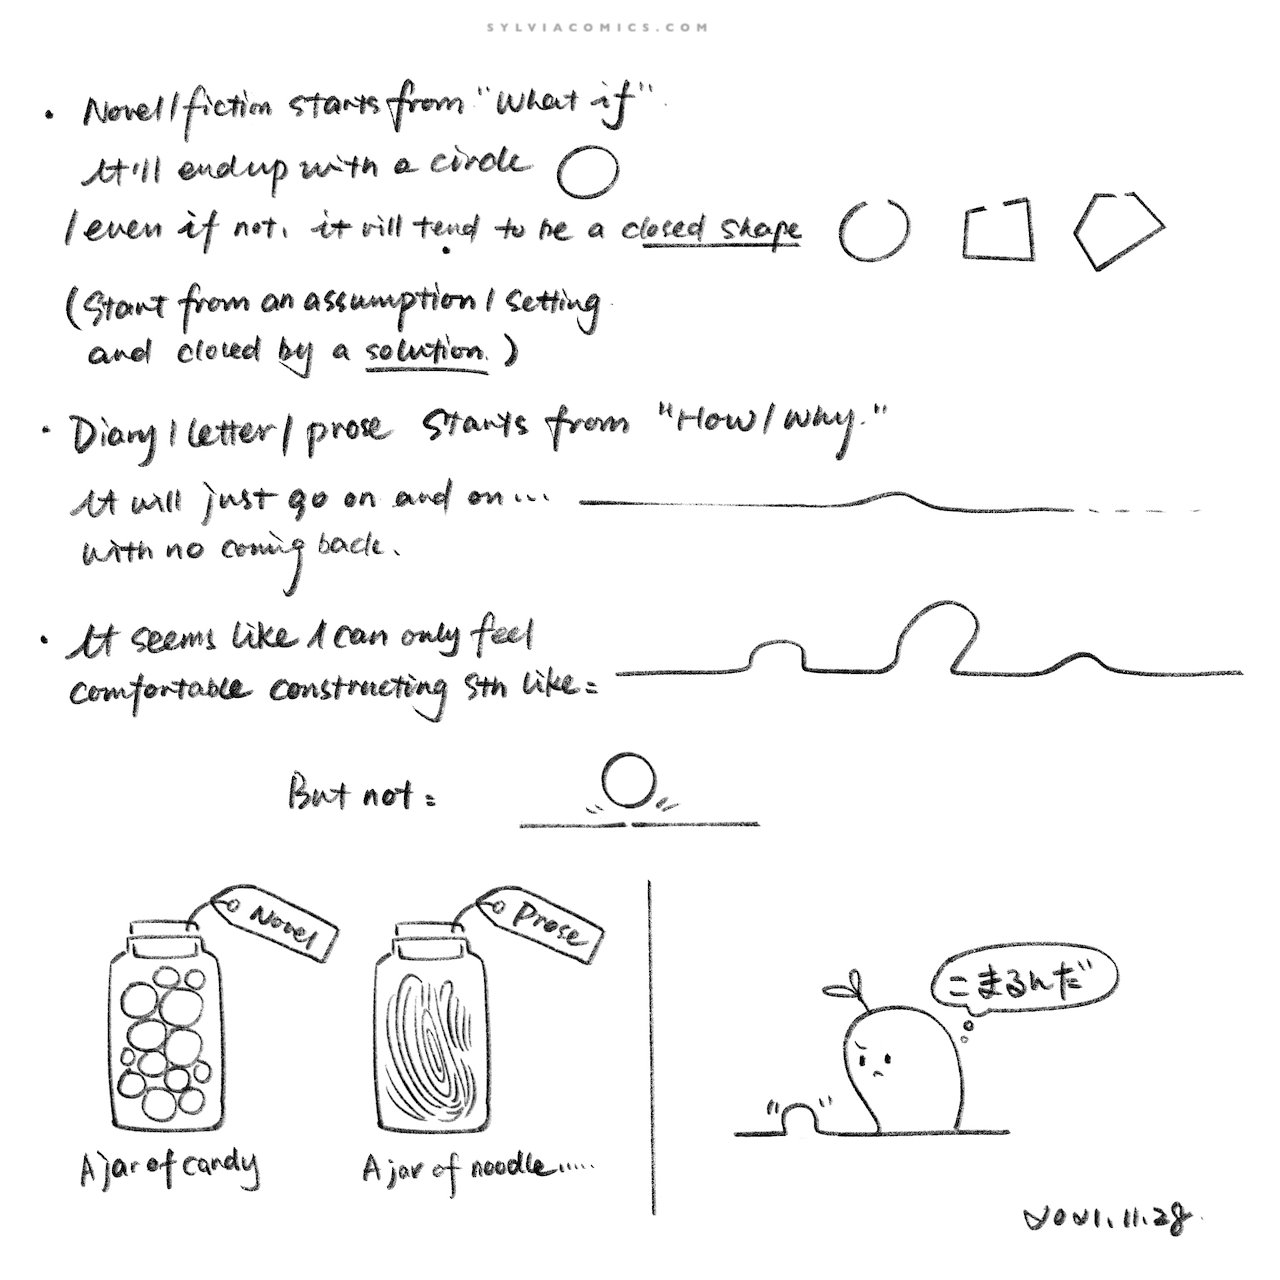 SYLVIACOMICS.COM
• Novel/fiction starts from "What if".
It'll end up with a circle
/even if not, it will tend to be a closed shape
(Start from an assumption/setting
and closed by a solution.)
• Diary/letter/prose starts from "How/Why."
It will just go on and on...
with no coming back.
• It seems like I can only feel
comfortable constructing sth like:
But not:
Novel
Prose
A jar of candy
A jar of noodle.....
こまるんだ"
2021.11.28.